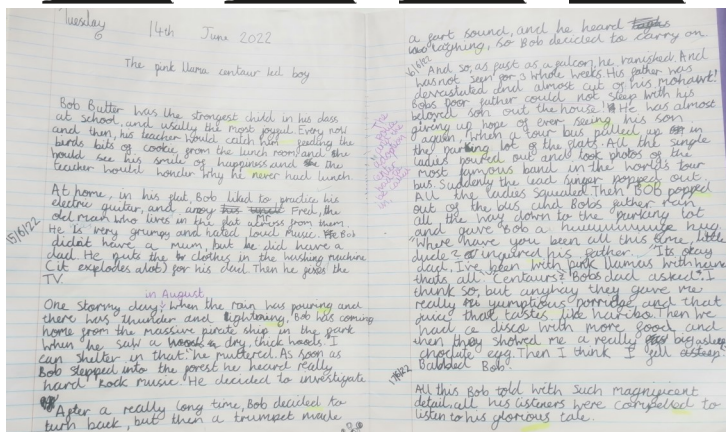 Tuesday 14th June 2022
The pink llama centaur led boy
Bob Butter was the strongest child in his class
at school, and usally the most joyful. Every now
and then, his teacher would catch him feeding the
birds bits of cookie from the lunch room and she
would see his smile of happiness and the
teacher would wonder why he never had lunch.
15/6/22
At home, in his flat, Bob liked to practice his
electric guitar, and anoy Fred, the
old man who lives in the flat across from them.
He is very grumpy and hated loud music. Mr Bob
didn't have a mum, but he did have a
dad. He puts the clothes in the washing machine
(it explodes alot) for his dad. Then he fixes the
TV.
in August
One stormy day, when the rain was pouring and
there was thunder and lightning, Bob was coming
home from the massive pirate ship in the park
when he saw a dry, thick woods. I
can shelter in that." he muttered. As soon as
Bob stepped into the forest he heard really
hard Rock music. He decided to investigate
After a really long time, Bob decided to
turn back, but then a trumpet made
a fart sound, and he heard
laughing, so Bob decided to carry on.
16/6/22
And so, as fast as a falcon, he vanished. And
was not seen for 3 whole weeks. His father was
devastated and almost cut of his mohawk!
Bobs poor father could not sleep with his
beloved son out the house! He was almost
giving up hope of ever seeing his son
again, when a tour bus pulled up in
the parking lot of the flats. All the single
ladies poured out and took photos of the
most famous band in the worlds tour
bus. Suddenly the lead singer popped out.
All the ladies squealed. Then BOB popped
out of the bus, and Bobs father ran
all the way down to the parking lot
and gave Bob a huuuuuuuuge hug.
"Where have you been all this time, little
dude?" inquired his father. "Its okay
dad, I've been with pink llamas with
thats all." Centaurs? Bobs dad asked. "I
think so, but anyhay they gave me
really yumptious porridge and that
juice that tastes like haribo. Then we
had a disco with more food and
then they showed me a really big
choclate egg. Then I think I fell asleep
Babbled Bob.
17/6/22
All this Bob told with such magnificent
detail, all his listeners were compelled to
listen to his glorious tale.